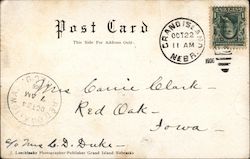 Post Card
This Side For Address Only.
GRAND ISLAND
OCT 22
11 AM
NEBR.
1906
Mrs Carrie Clark-
Red Oak-
Iowa-
c/o Mrs L. D. Duke-
J. Leschinsky Photographer-Publisher Grand Island Nebraska